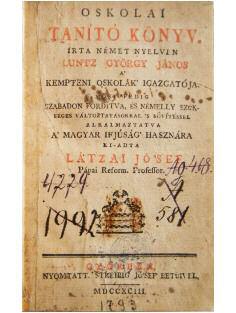 OSKOLAI
TANÍTÓ KÖNYV.
ÍRTA NÉMET NYELVEN
LUNTZ GYÖRGY JÁNOS
A'
KEMPTENI OSKOLÁK' IGAZGATÓJA.
MOST PEDIG
SZABADON FORDÍTVA, ÉS NÉMELLY SZÜK-
SÉGES VÁLTOZTATÁSOKKAL 'S BŐVÍTÉSSEL
ALKALMAZTATVA
A' MAGYAR IFJÚSÁG' HASZNÁRA
KI-ADTA
LÁTZAI JÓ'SEF
Pápai Reform. Professor.
4779
1992
584
GYŐRBEN,
NYOMTATT. STREIBIG JÓ'SEF BETŰIVEL,
MDCCXCIII.
1793